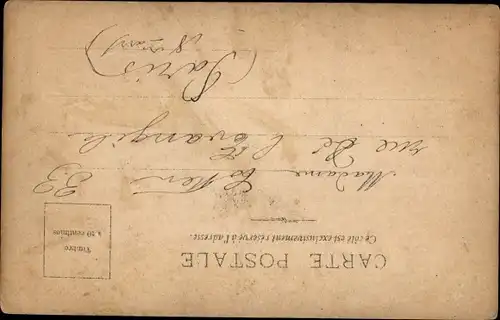 CARTE POSTALE
Ce côté est exclusivement réservé à l'adresse.
Timbre
à 10 centimes
Madame
33
rue de l'Evangile
(Paris)
18